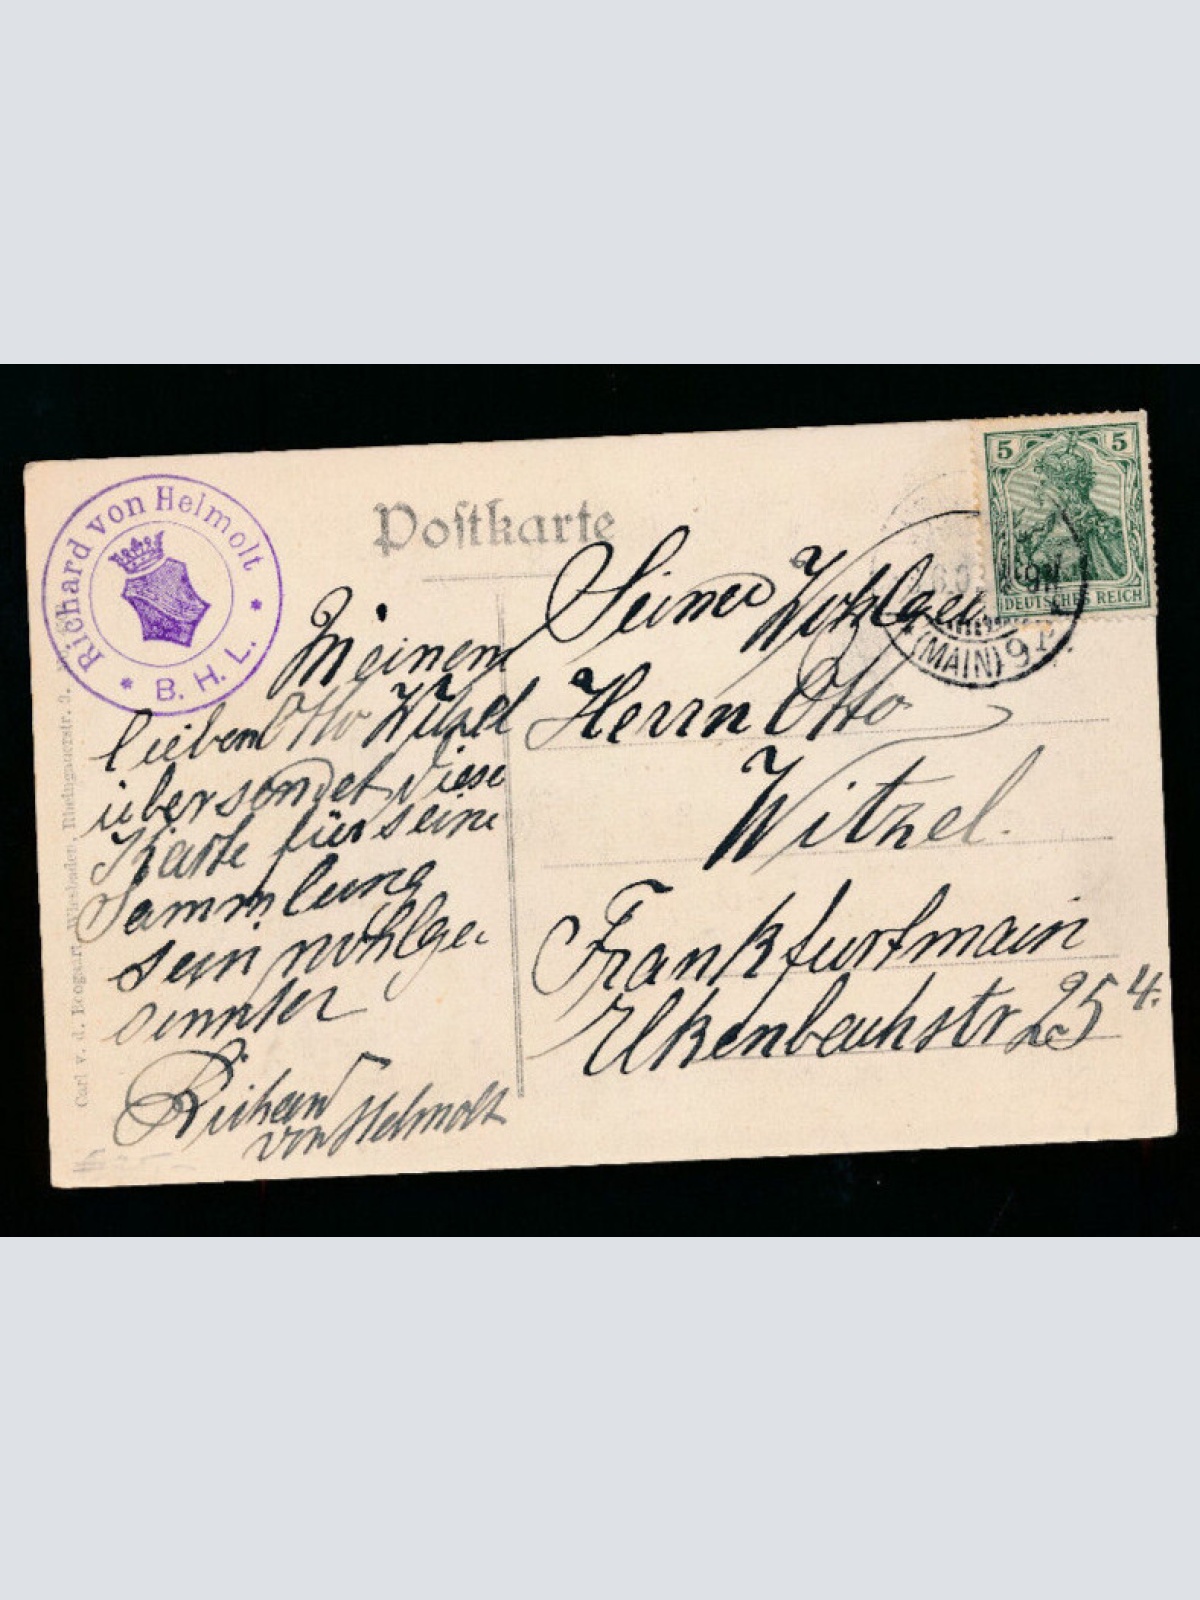 Richard von Helmolt
* B. H. L. *
Postkarte
5 5
DEUTSCHES REICH
(MAIN) 9
Meinem
lieben Otto Witzel
übersendet diese
Karte für seine
Sammlung
sein wohlge-
sinnter
Richard
von Helmolt
Seiner Wohlgeb
Herrn Otto
Witzel.
Frankfurtmain
Elkenbachstr 25 4.
Carl v. d. Boogaart, Wiesbaden, Rheingauerstr. 3.